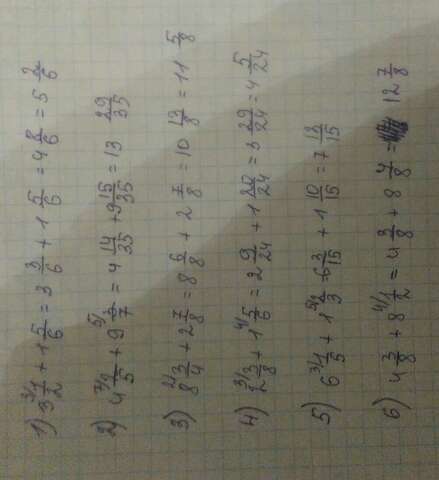 1) 3 ³⁄ 1/2 + 1 5/6 = 3 3/6 + 1 5/6 = 4 8/6 = 5 2/6
2) 4 ⁷⁄ 2/5 + 9 ⁵⁄ 3/7 = 4 14/35 + 9 15/35 = 13 29/35
3) 8 ²⁄ 3/4 + 2 7/8 = 8 6/8 + 2 7/8 = 10 13/8 = 11 5/8
4) 2 ³⁄ 3/8 + 1 ⁴⁄ 5/6 = 2 9/24 + 1 20/24 = 3 29/24 = 4 5/24
5) 6 ³⁄ 1/5 + 1 ⁵⁄ 2/3 = 6 3/15 + 1 10/15 = 7 13/15
6) 4 3/8 + 8 ⁴⁄ 1/2 = 4 3/8 + 8 4/8 = 12 7/8